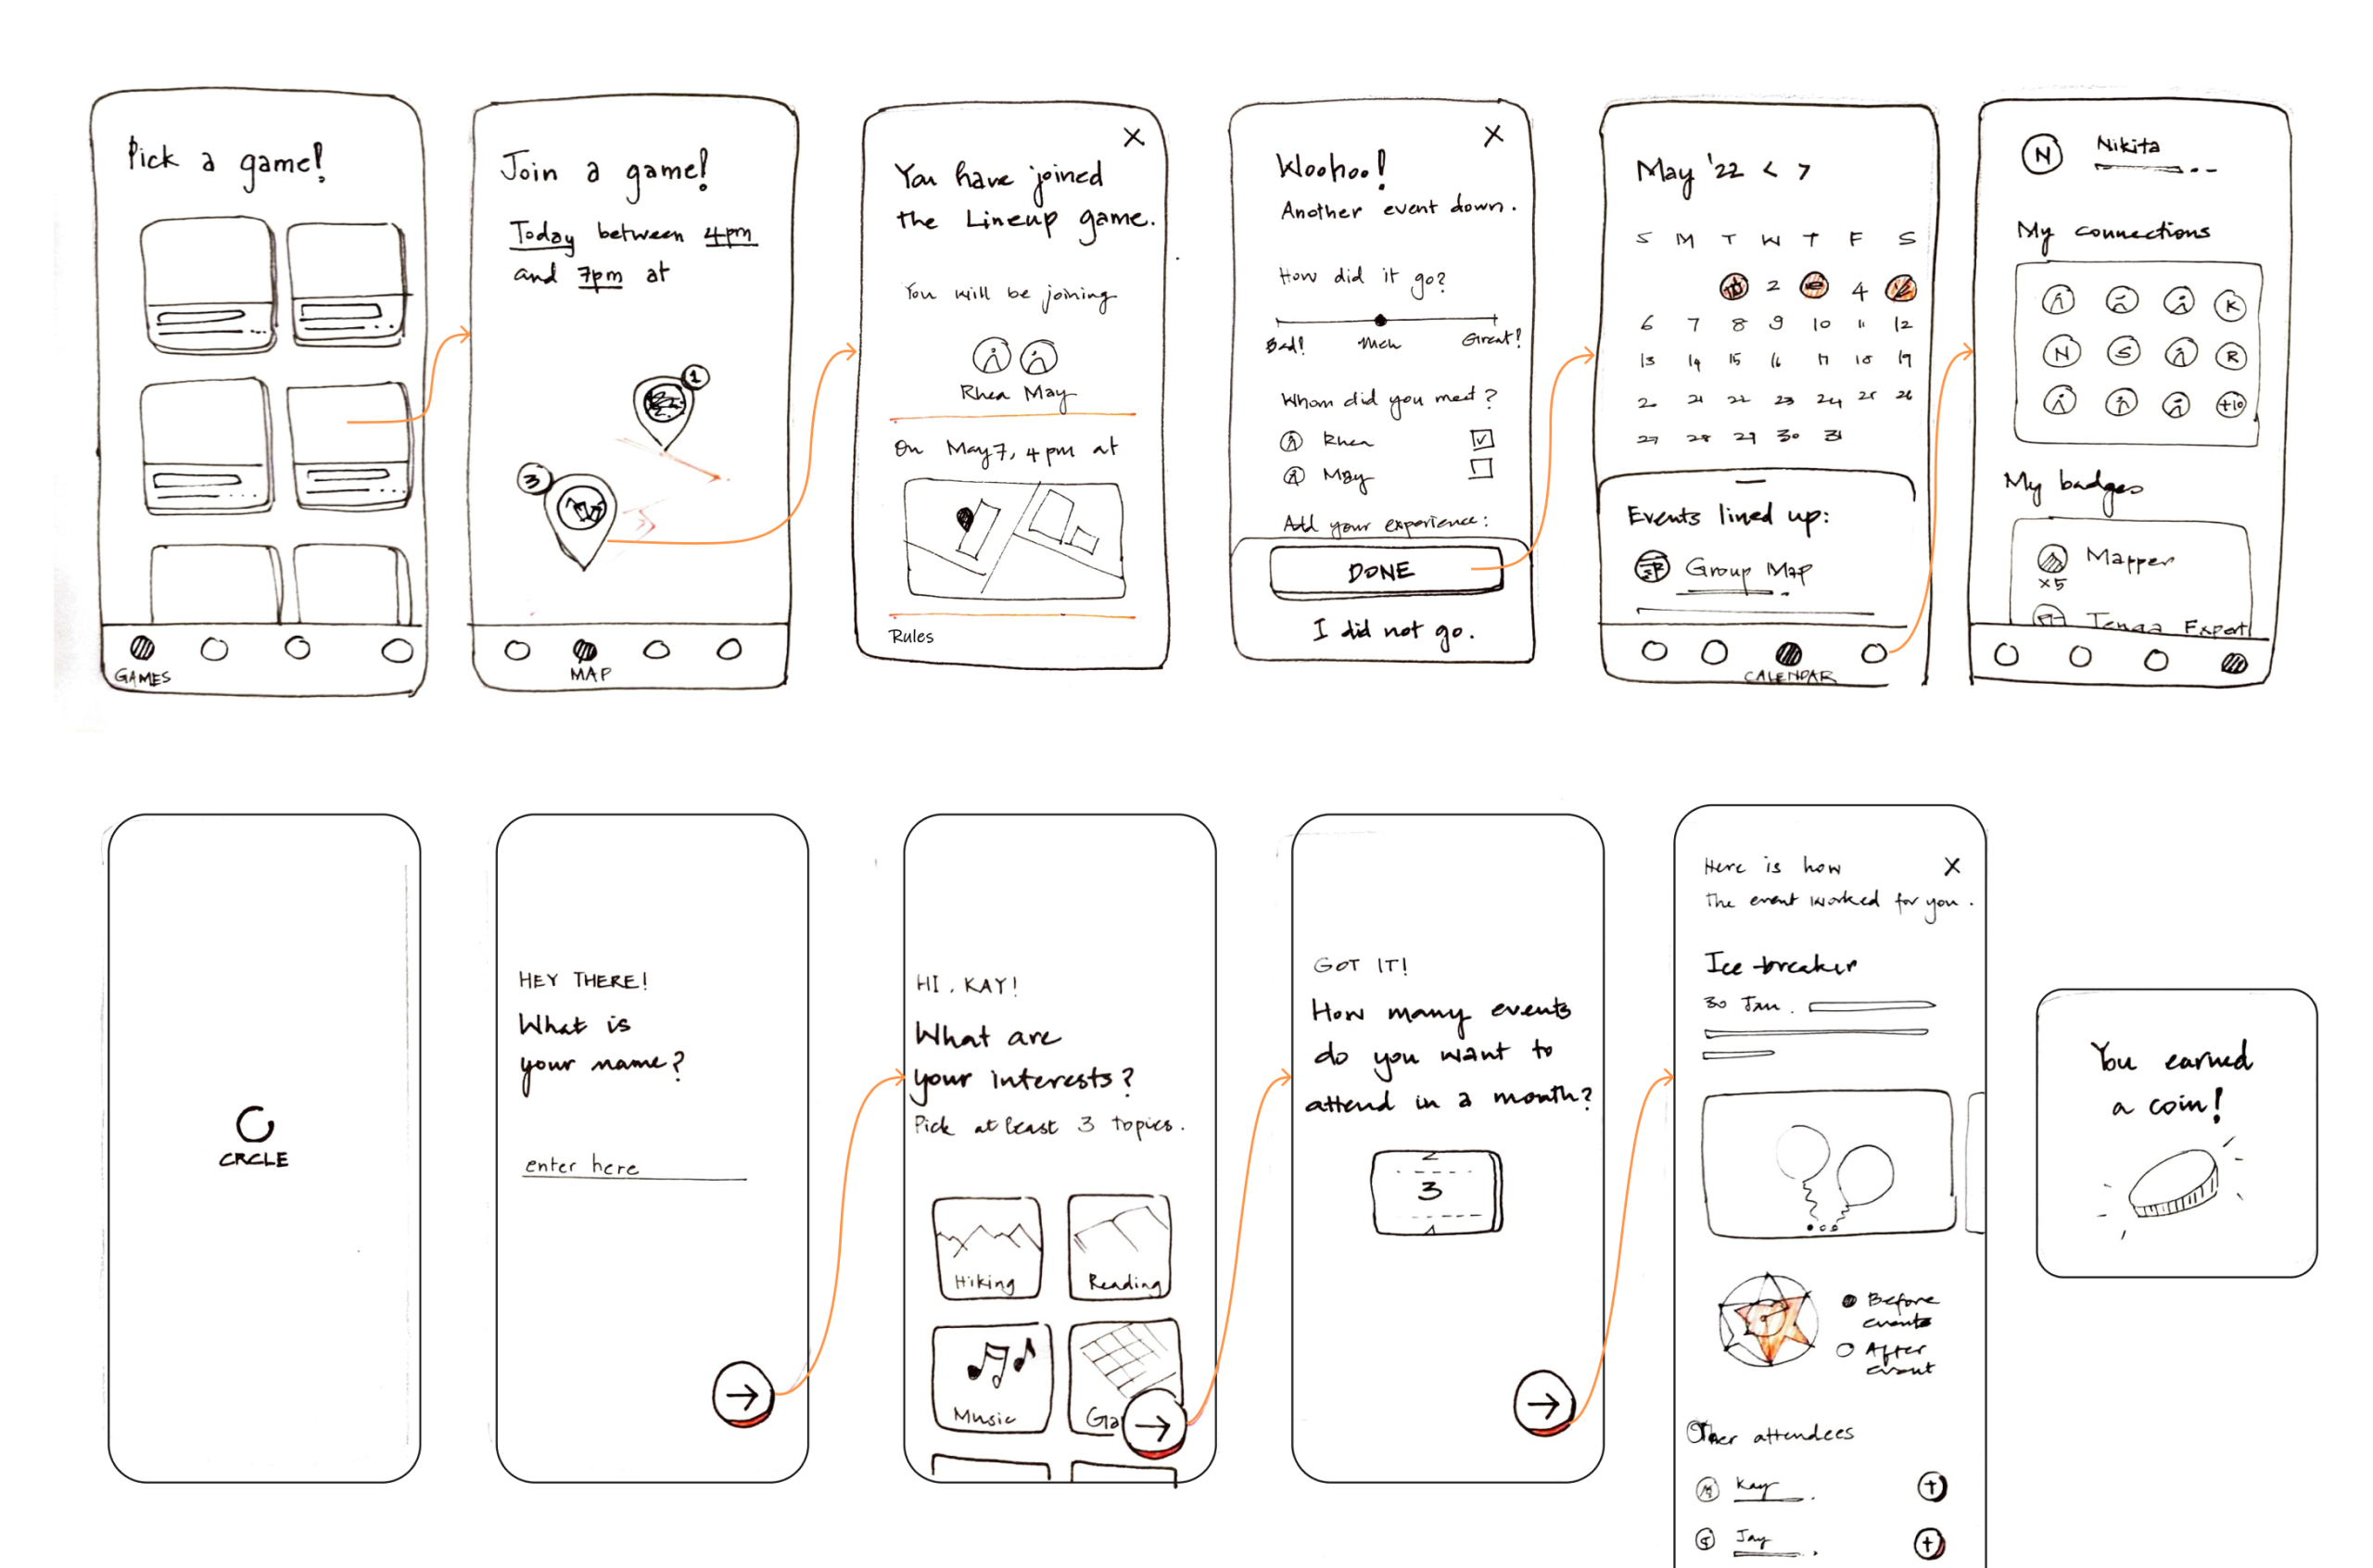 Pick a game!
GAMES
Join a game!
Today between 4pm
and 7pm at
1
3
MAP
X
You have joined
the Lineup game.
You will be joining
Rhea May
On May 7, 4 pm at
Rules
X
Woohoo!
Another event down.
How did it go?
Bad! Meh Great!
Whom did you meet?
Rhea
May
Add your experience:
DONE
I did not go.
May '22 < >
S M T W T F S
2 4
6 7 8 9 10 11 12
13 14 15 16 17 18 19
2 21 22 23 24 25 26
27 28 29 30 31
Events lined up:
Group Map
CALENDAR
N Nikita
My connections
K
N S R
+10
My badges
Mapper
x5
Tenga Expert
CRCLE
HEY THERE!
What is
your name?
enter here
HI, KAY!
What are
your interests?
Pick at least 3 topics.
Hiking Reading
Music Ga
GOT IT!
How many events
do you want to
attend in a month?
2
3
Here is how X
The event worked for you.
Ice breaker
30 Jan.
Before
events
After
event
Other attendees
Kay
Jay
You earned
a coin!